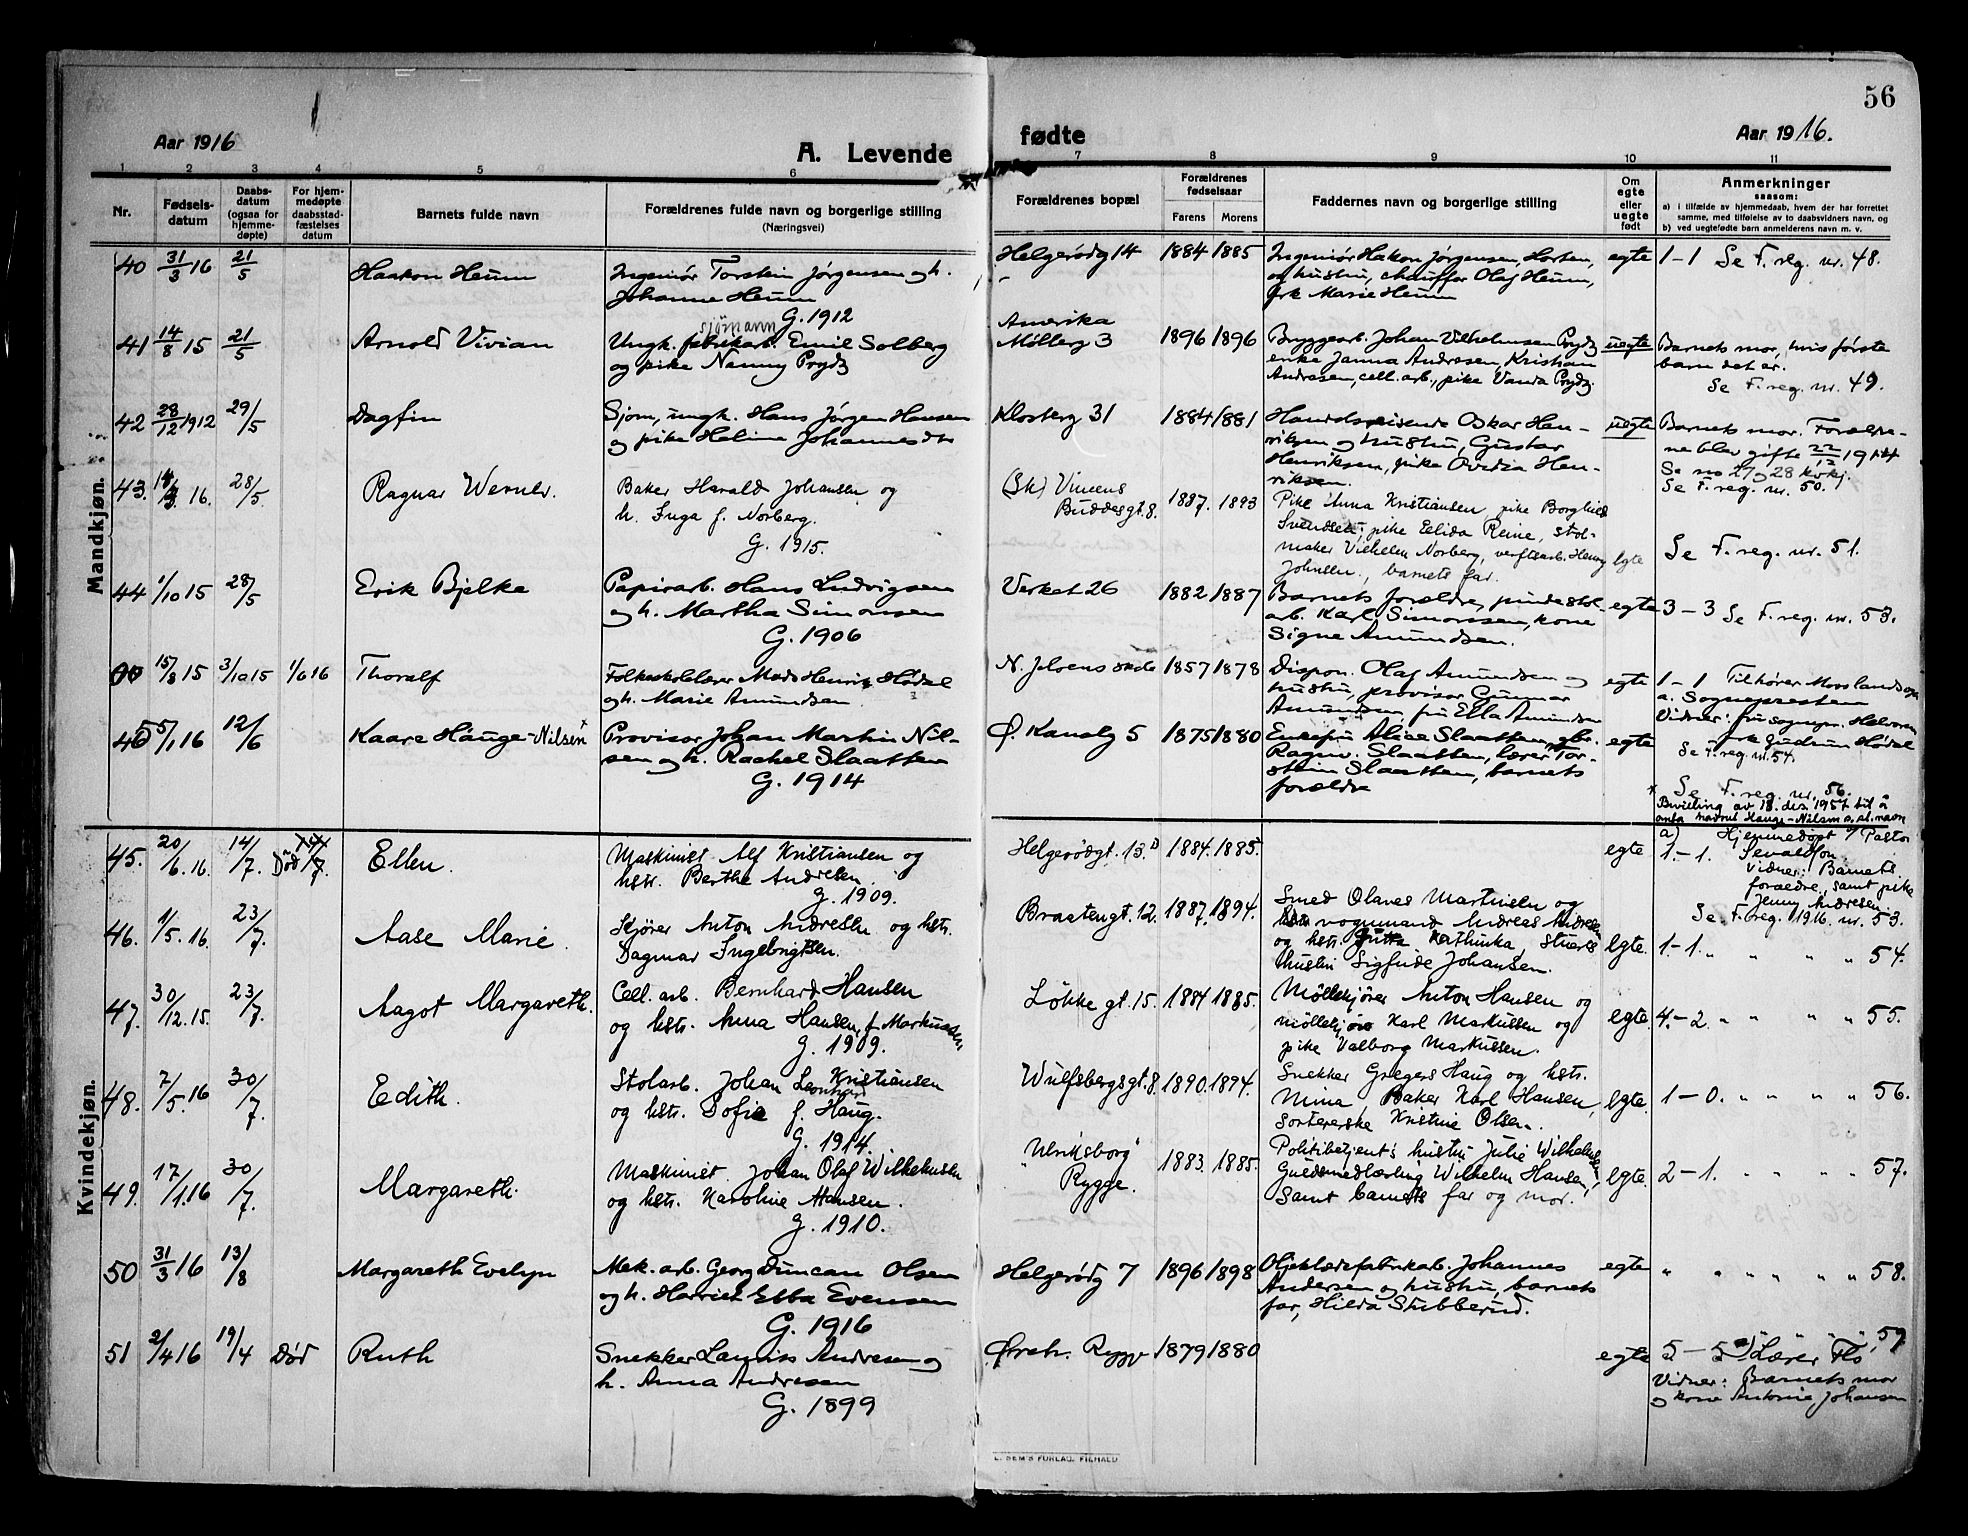 56
Aar 1916
A. Levende
fødte
Aar 1916.
1 2 3 4 5 6 7 8 9 10 11
Nr.
Fødsels-
datum
Daabs-
datum
(ogsaa for
hjemme-
døpte)
For hjem-
medøpte
daabsstad-
fæstelses
datum
Barnets fulde navn
Forældrenes fulde navn og borgerlige stilling
(Næringsvei)
Forældrenes bopæl
Forældrenes
fødselsaar
Farens Morens
Faddernes navn og borgerlige stilling
Om
egte
eller
uegte
født
Anmerkninger
saasom:
a) i tilfælde av hjemmedaab, hvem der har forrettet
samme, med tilføielse av to daabsvidners navn, og
b) ved uegtefødte barn anmelderens navn m. v.
Mandkjøn.
40 31/3 16 21/5 Haakon Heum
Ingeniør Torstein Jørgensen og h.
Johanne Heum
G. 1912
Helgerødg 14 1884 1885
Ingeniør Hakon Jørgensen, Horten,
og hustru, chauffør Olaf Heum,
frk Marie Heum
egte 1-1 Se F. reg. nr. 48.
41 14/8 15 21/5 Arnold Vivian
sjømann
Ungk. fabrikarb. Emil Solberg
og pike Nanny Prydz
Amerika
Møllerg 3 1896 1896
Bryggearb. Johan Vilhelmsen Prydz
enke Janna Andresen, Kristian
Andresen, cell. arb., pike Vanda Prydz.
uegte Barnets mor, hvis første
barn det er.
Se F. reg. nr. 49.
42 28/12 1912 29/5 Dagfin
Sjøm., ungk. Hans Jørgen Hansen
og pike Heline Johannesdtr
Klosterg 31 1884 1881
Handelsreisende Oskar Hen-
riksen og hustru, Gustav
Henriksen, pike Ovidia Hen-
riksen.
uegte Barnets mor. Forældre-
ne blev gifte 22/12 1914
Se no 27 og 28 kirkj.
Se F. reg. nr. 50.
43. 16. 28/5 Ragnar Werner.
Baker Harald Johansen og
h. Inga f. Norberg.
G. 1915.
(Sk) Vincens
Buddesgt. 8. 1887. 1893
Pike Anna Kristiansen, pike Borghild
Svendsen, pike Elida Reine, stol-
maker Vilhelm Norberg, verftsarb. Henry
Johnsen, barnets far.
egte Se F. reg. nr. 51.
44 1/10 15 28/5 Erik Bjelke
Papirarb. Hans Ludvigsen
og h. Martha Simonsen
G. 1906
Verket 26 1882 1887
Barnets forældre, pindestol-
arb. Karl Simonsen, kone
Signe Amundsen.
egte 3-3 Se F. reg. nr. 53.
00 15/8 15 3/10 15 1/6 16 Thoralf
Folkeskolelærer Mads Henrik Hødal
og h. Marie Amundsen
N. Jeløens skole 1857 1878
Dispon. Olaf Amundsen og
hustru, provisor Gunnar
Amundsen, frk Ella Amundsen
egte 1-1 Tilhører Moss landsogn
a. Sognepresten
Vidner: fru sognepr. Halvorsen
frk Gudrun Hødal
Se F. reg. nr. 54.
45 5/1 16 12/6 Kaare Hauge-Nilsen x
Provisor Johan Martin Nil-
sen og h. Rachel Slaatten
G. 1914
Ø. Kanalg 5 1875 1880
Enkefru Alice Slaatten, gbr.
Ragnv. Slaatten, lærer Tor-
stein Slaatten, barnets
forældre
egte
Se F. reg. nr. 56.
x Bevilling av 18. des. 1957 til å
anta navnet Hauge-Nilsen s. sl.navn
Kvindekjøn.
45. 20/6. 16. 14/7. Død 14/7 Ellen.
Maskinist Alf Kristiansen og
hstr. Berthe Andresen.
G. 1909.
Helgerødgt. 13. 1884. 1885.
egte 1.-1.
a) Hjemmedøpt v/ Pastor
Sevaldson.
Vidner: Barnets
forældre, samt pike
Jenny Andresen.
Se F. reg. 1916. nr. 53.
46. 1/5. 16. 23/7. Aase Marie.
Kjører Anton Andresen og hstr.
Dagmar Ingebrigtsen.
Braatengt. 12. 1887. 1894.
Smed Olaves Martinsen og
vognmand Andreas Andresen
og hstr. Kathinka, stuerts
hustru Sigfride Johansen.
egte. 1-1. " " " " 54.
47. 30/12. 15. 23/7. Aagot Margareth.
Cell. arb. Bernhard Hansen
og hstr. Anna Hansen, f. Markussen
G. 1909.
Løkke gt. 15. 1884 1885.
Møllekjører Anton Hansen og
møllekjører Karl Markussen og
pike Valborg Markussen.
egte. 4.-2. " " " " 55.
48. 7/5. 16 30/7. Edith.
Stolarb. Johan Leonhard Kristiansen
og hstr. Sofie f. Haug.
G. 1914.
Wulfsbergsgt. 8. 1890. 1894.
Snekker Gregers Haug og hstr.
Mina, Baker Karl Hansen,
sortererske Kristine Olsen.
egte. 1-0. " " " " 56.
49. 17/1. 16 30/7. Margareth.
Maskinist Johan Olaf Wilhelmsen
og hstr. Karoline Hansen.
G. 1910.
"Ulriksborg"
Rygge. 1883. 1885.
Politibetjent's hustru Julie Wilhelmsen,
Guldsmedlærling Wilhelm Hansen,
samt barnets far og mor.
egte. 2-1. " " " " 57.
50 31/3 16 13/8 Margareth Evelyn
Mek. arb. Georg Duncan Olsen
og h. Harriet Ebba Evensen
G. 1916
Helgerødg 7 1896 1898
Oljeklædefabrikarb. Johannes
Andersen og hustru, barnets
far, Hilda Stubberud.
egte " " " " " " 58.
51 2/4 16 19/4 Død Ruth
Snekker Laurits Andresen og
h. Anna Andresen
G. 1899
Øreh. Rygge 1879 1880
egte 5-5 a) Lærer Flo 59.
Vidner: Barnets mor
og kone Antonie Johansen
E. SEM'S FORLAG, FR.HALD